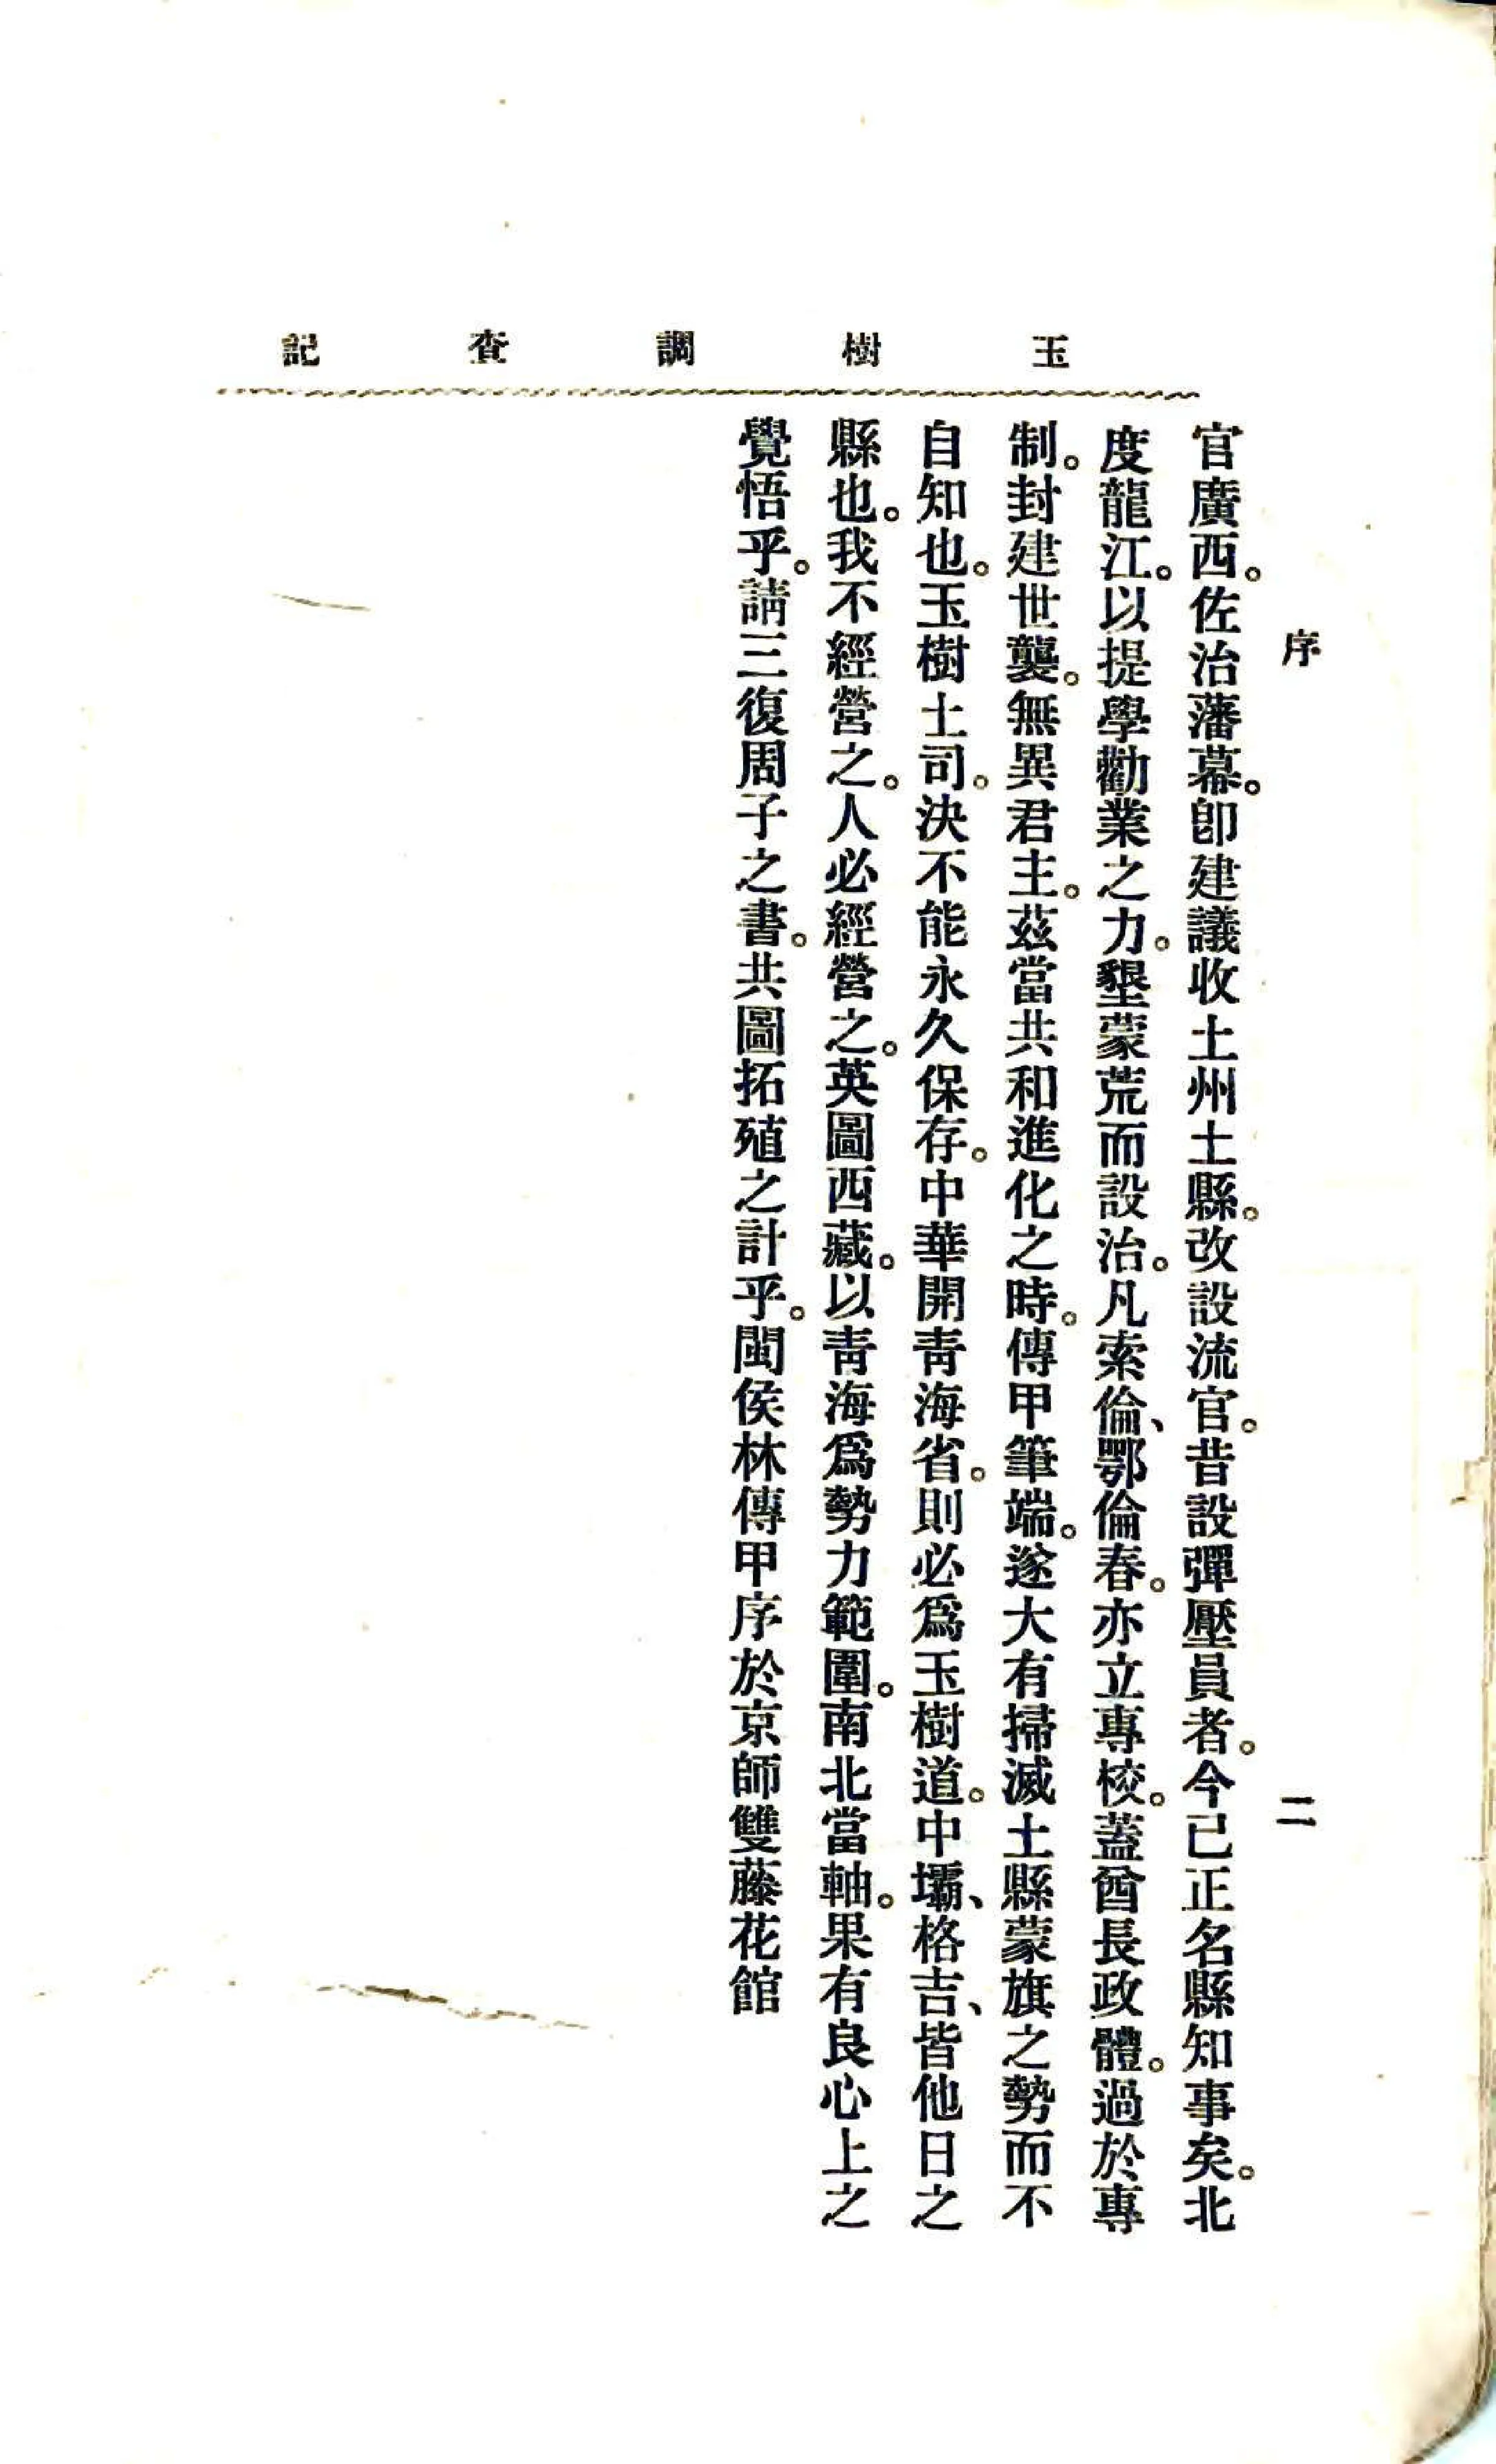 玉樹調查記
序
二
官廣西。佐治藩幕。卽建議收土州土縣。改設流官。昔設彈壓員者。今已正名縣知事矣。北
度龍江。以提學勸業之力。墾蒙荒而設治。凡索倫、鄂倫春。亦立專校。蓋酋長政體。過於專
制。封建世襲。無異君主。茲當共和進化之時。傳甲筆端。遂大有掃滅土縣蒙旗之勢而不
自知也。玉樹土司。決不能永久保存。中華開靑海省。則必爲玉樹道。中壩、格吉、皆他日之
縣也。我不經營之。人必經營之。英圖西藏。以靑海爲勢力範圍。南北當軸。果有良心上之
覺悟乎。請三復周子之書。共圖拓殖之計乎。閩侯林傳甲序於京師雙藤花館